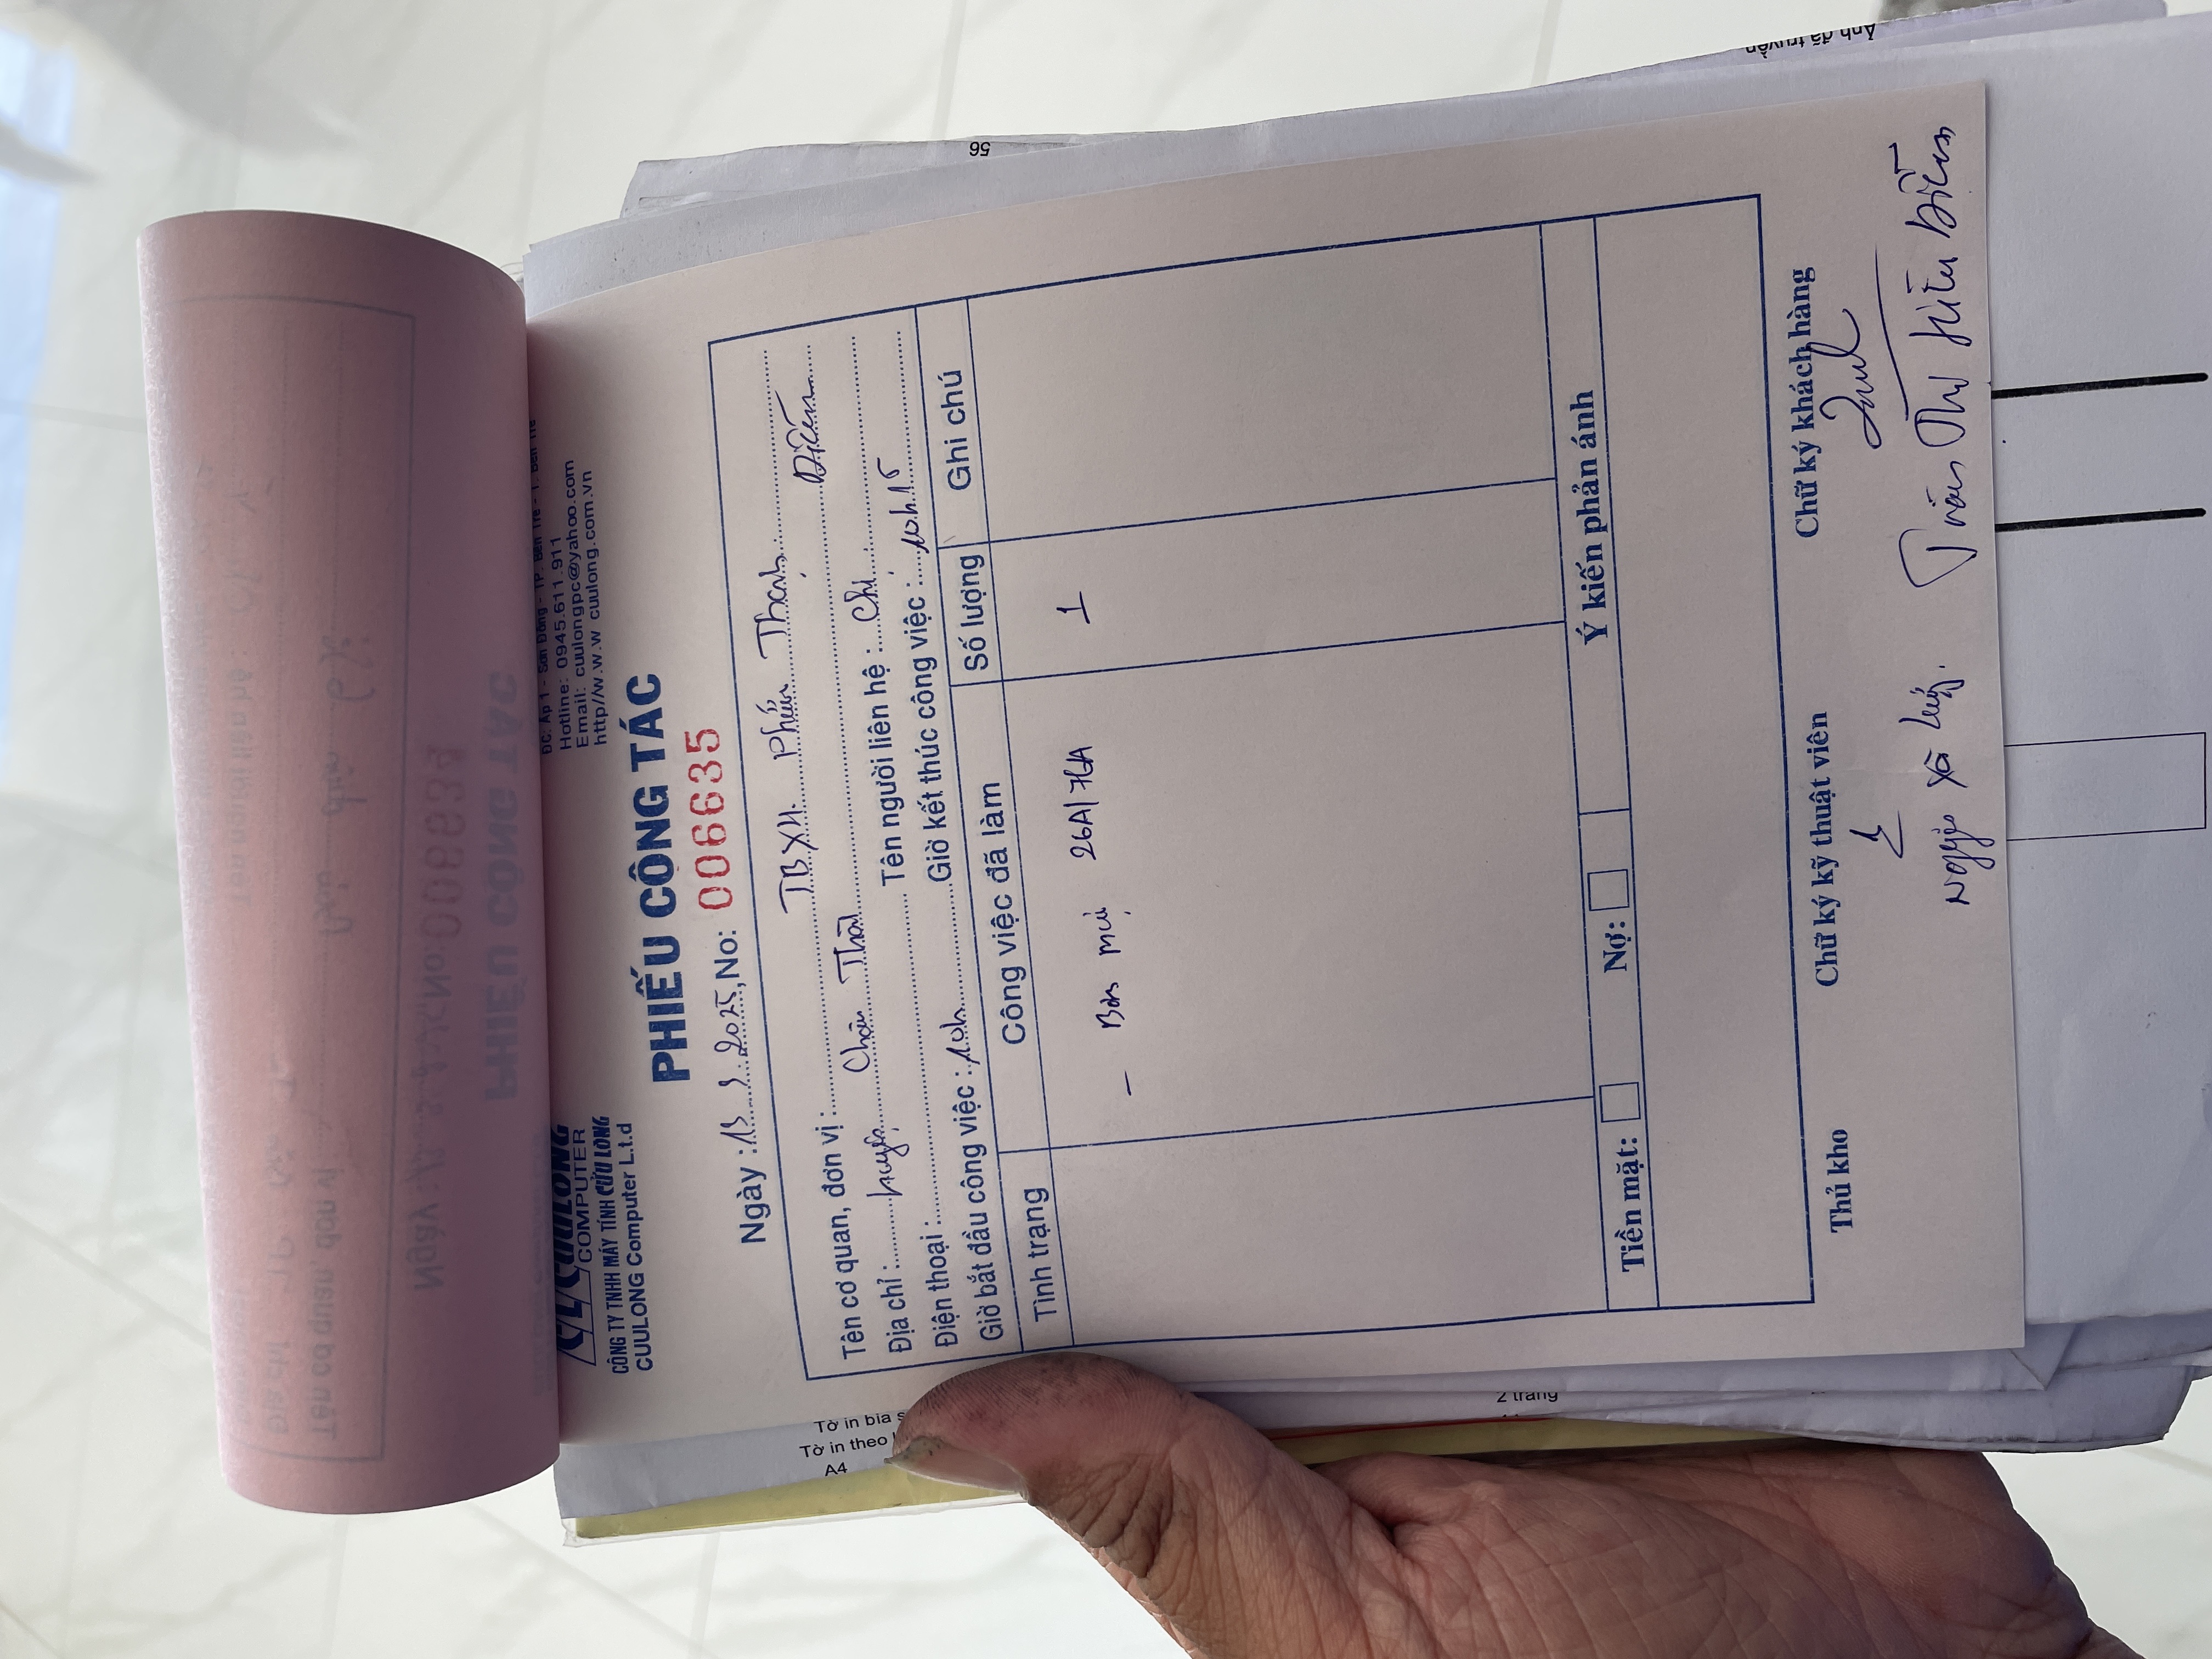 CUULONG
COMPUTER
CÔNG TY TNHH MÁY TÍNH CỬU LONG
CUULONG Computer L.t.d
ĐC: Ấp 1 - Sơn Đông - TP. Bến Tre - T. Bến Tre
Hotline: 0945.611.911
Email: cuulongpc@yahoo.com
http//w.w.w cuulong.com.vn
PHIẾU CÔNG TÁC
Ngày : 13 3 2025, No: 006635
Tên cơ quan, đơn vị : TBXH. Thạnh
Địa chỉ : huyện Châu Tên người liên hệ : Chị Diễm
Điện thoại :
Giờ bắt đầu công việc : 10h Giờ kết thúc công việc : 10h15
Tình trạng Công việc đã làm Số lượng Ghi chú
- Bơm mực 26A/76A 1
Tiền mặt: Nợ: Ý kiến phản ánh
Thủ kho Chữ ký kỹ thuật viên Chữ ký khách hàng
Trần Thị Diễm
56
Ảnh đã truyền
Tờ in bìa s
Tờ in theo
A4
2 trang